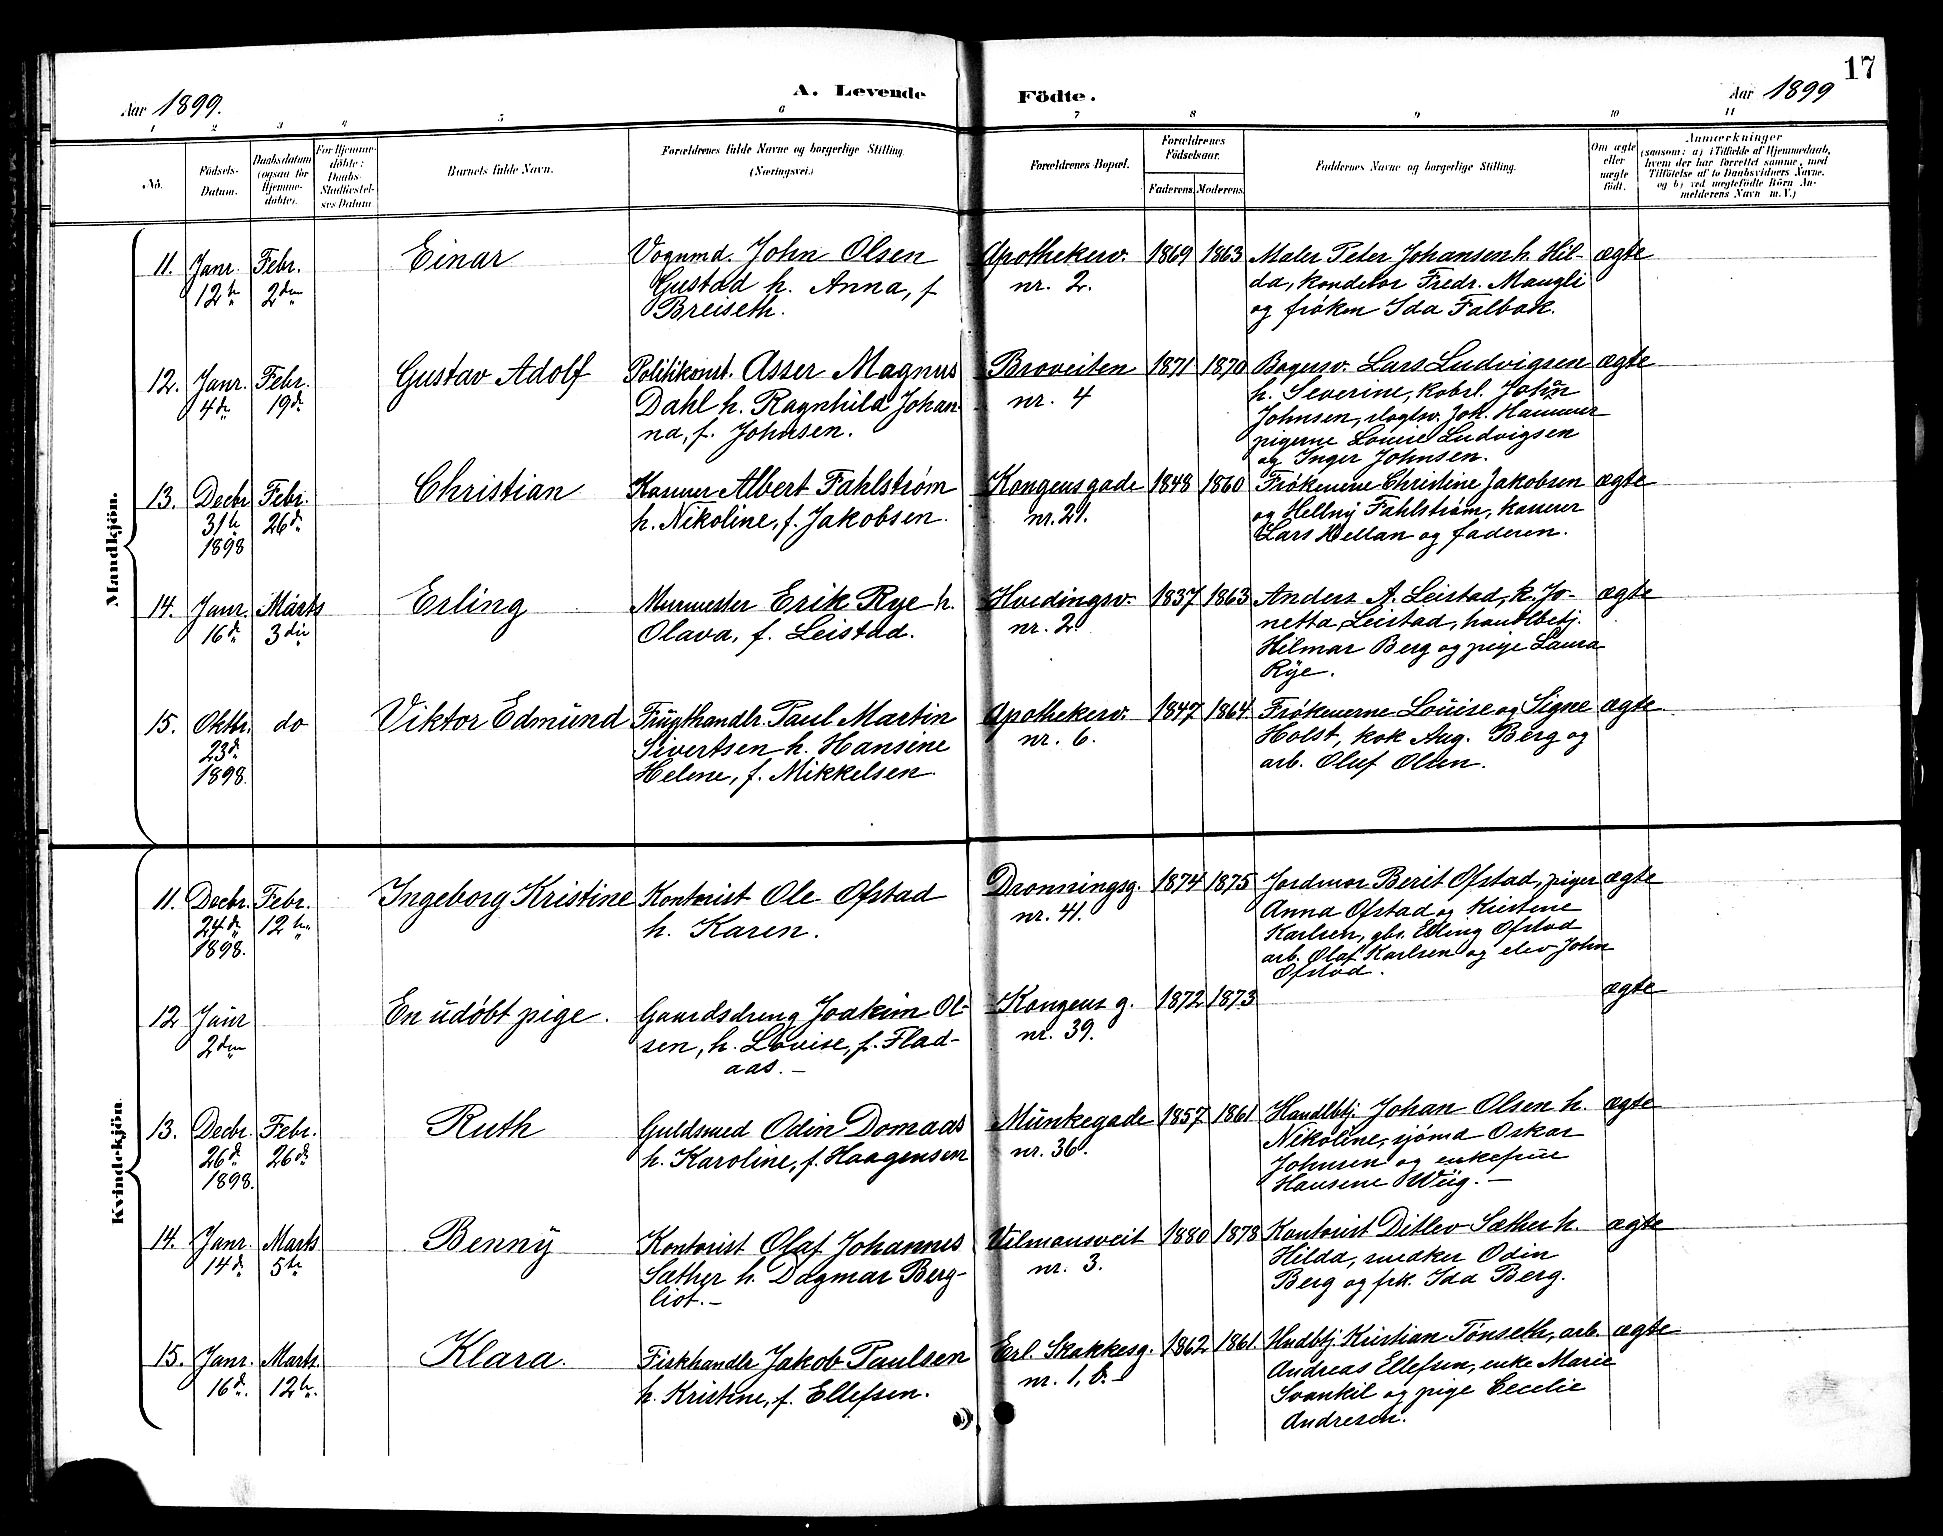 17
Aar 1899. A. Levende Födte. Aar 1899
1 2 3 4 5 6 7 8 9 10 11
No. Födsels-Datum. Daabsdatum (ogsaa for Hjemmedøbte). For Hjemmedöbte: Daabs-Stadfæstelses Datum Barnets fulde Navn. Forældrenes fulde Navne og borgerlige Stilling. (Næringsvei.) Forældrenes Bopæl. Forældrenes Födselsaar. Faderens. Moderens. Faddernes Navne og borgerlige Stilling. Om ægte eller uægte födt. Anmærkninger (saasom: a) i Tilfælde af Hjemmedaab, hvem der har forrettet samme, med Tilföielse af to Daabsvidners Navne. og b) ved uægtefödte Börn Anmelderens Navn m. V.)
Mandkjön.
11. Janr. 12te Febr. 2den Einar
Vognmd. John Olsen
Gustad h. Anna, f
Breiseth.
Apothekerv.
nr. 2.
1869 1863
Maler Peter Johansen h. Hil-
da, kondetor Fredr. Maugli
og frøken Ida Falbak.
ægte
12. Janr. 4de Febr. 19de Gustav Adolf
Politikonst. Asser Magnus
Dahl h. Ragnhild Johan-
na, f. Johnsen.
Broveiten
nr. 4
1871 1870
Bogerv. Lars Ludvigsen
h. Severine, kobsl. John
Johnsen, slagtsv. Joh. Hammer
pigerne Louise Ludvigsen
og Inger Johnsen.
ægte
13. Decbr. 31te 1898 Febr. 26de Christian
Kasserer Albert Fahlstrøm
h. Nikoline, f. Jakobsen.
Kongensgade
nr. 21.
1848 1860
Frøknerne Christine Jakobsen
og Hellny Fahlstrøm, kasserer
Lars Mellan og faderen.
ægte
14. Janr. 16de Marts 3die Erling
Murmester Erik Rye h.
Olava, f. Leistad.
Hvedingsv.
nr. 2.
1837 1863
Anders A. Leistad, k. Jo-
netta Leistad, handlbetj.
Hilmar Berg og pige Laura
Rye.
ægte
15. Oktbr. 23de 1898. do Viktor Edmund
Frugthandlr. Paul Martin
Sivertsen h. Hansine
Helene, f. Mikkelsen.
Apothekerv.
nr. 6.
1847 1864
Frøkenerne Louise og Signe
Holst, kok Aug. Berg og
arb. Oluf Olsen.
ægte
Kvindekjön.
11. Decbr. 24de 1898. Febr. 12te Ingeborg Kristine
Kontorist Ole Ofstad
h. Karen.
Dronningsg.
nr. 41.
1874 1875
Jordmor Berit Ofstad, piger
Anna Ofstad og Kirstene
Karlsen, gbr. Elling Ofstad
arb. Olaf Karlsen og elev John
Ofstad.
ægte
12 Janr 2den En udøbt pige.
Gaardsdreng Joakim Ol-
sen, h. Lovise, f. Flad-
aas.—
Kongens g.
nr. 39.
1872 1873
ægte
13. Decbr. 26de 1898. Febr. 26de Ruth
Guldsmed Odin Domaas
h. Karoline, f. Haagensen
Munkegade
nr. 36.
1857 1861
Handlbtj. Johan Olsen h.
Nikoline, sjømd Oskar
Johnsen og enkefrue
Hansene Wiig.—
ægte
14. Janr. 14de Marts 5te Benny
Kontorist Olaf Johannes
Sæther h. Dagmar Berg-
liot.—
Vilmansveit
nr. 3.
1880 1878
Kontorist Ditlev Sæther h.
Hilda, snedker Odin
Berg og frk. Ida Berg.
ægte
15. Janr. 16de. Marts. 12te. Klara.
Fiskhandlr Jakob Paulsen
h. Kristine, f. Ellefsen.
Erl. Skakkesg.
nr. 1, b.—
1862 1861.
Hndbtj Kristian Tønseth, arb.
Andreas Ellefsen, enke Marie
Svankil og pige Cecelie
Andresen.
ægte